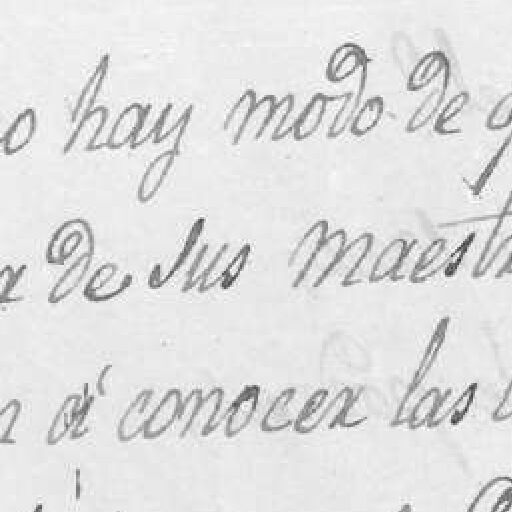 o hay modo de
de sus maest
á conocer las